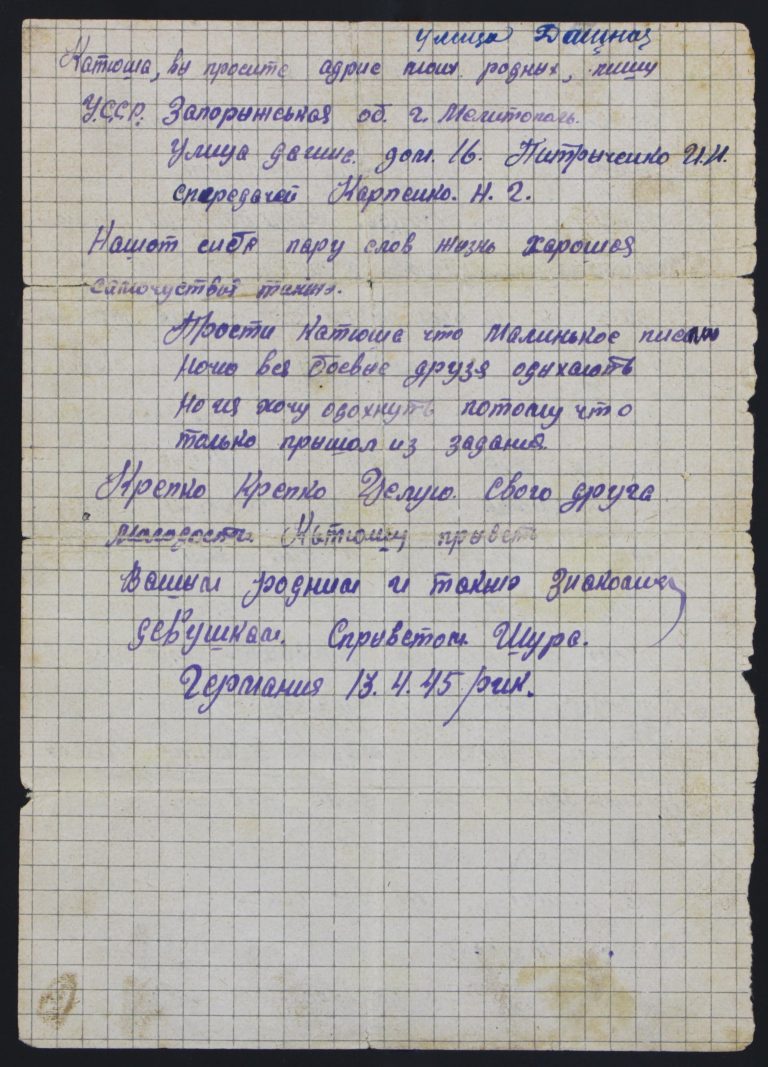 улица Дашная
Катюша, вы просите адрис моих родных, пишу
У.С.С.Р. Запорыжськая об. г. Мелитополь.
Улица дашн. дом. 16. Питрыченко И.И.
спередачей Карпенко. Н. Г.
Нашот сибя пару слов жизнь харошая
самочуствое такжэ.
Прости Катюша что малинькое писмо
Ночю вся боевые друзя одыхають
но и я хочу одохнуть потому что
только прышол из задания.
Крепко Крепко Целую. Свого друга
молодости Катюшу прывет
Вашим родним и такжэ знакомим
девушкам. Спрыветом Шура.
Германия 13. 4. 45 рик.